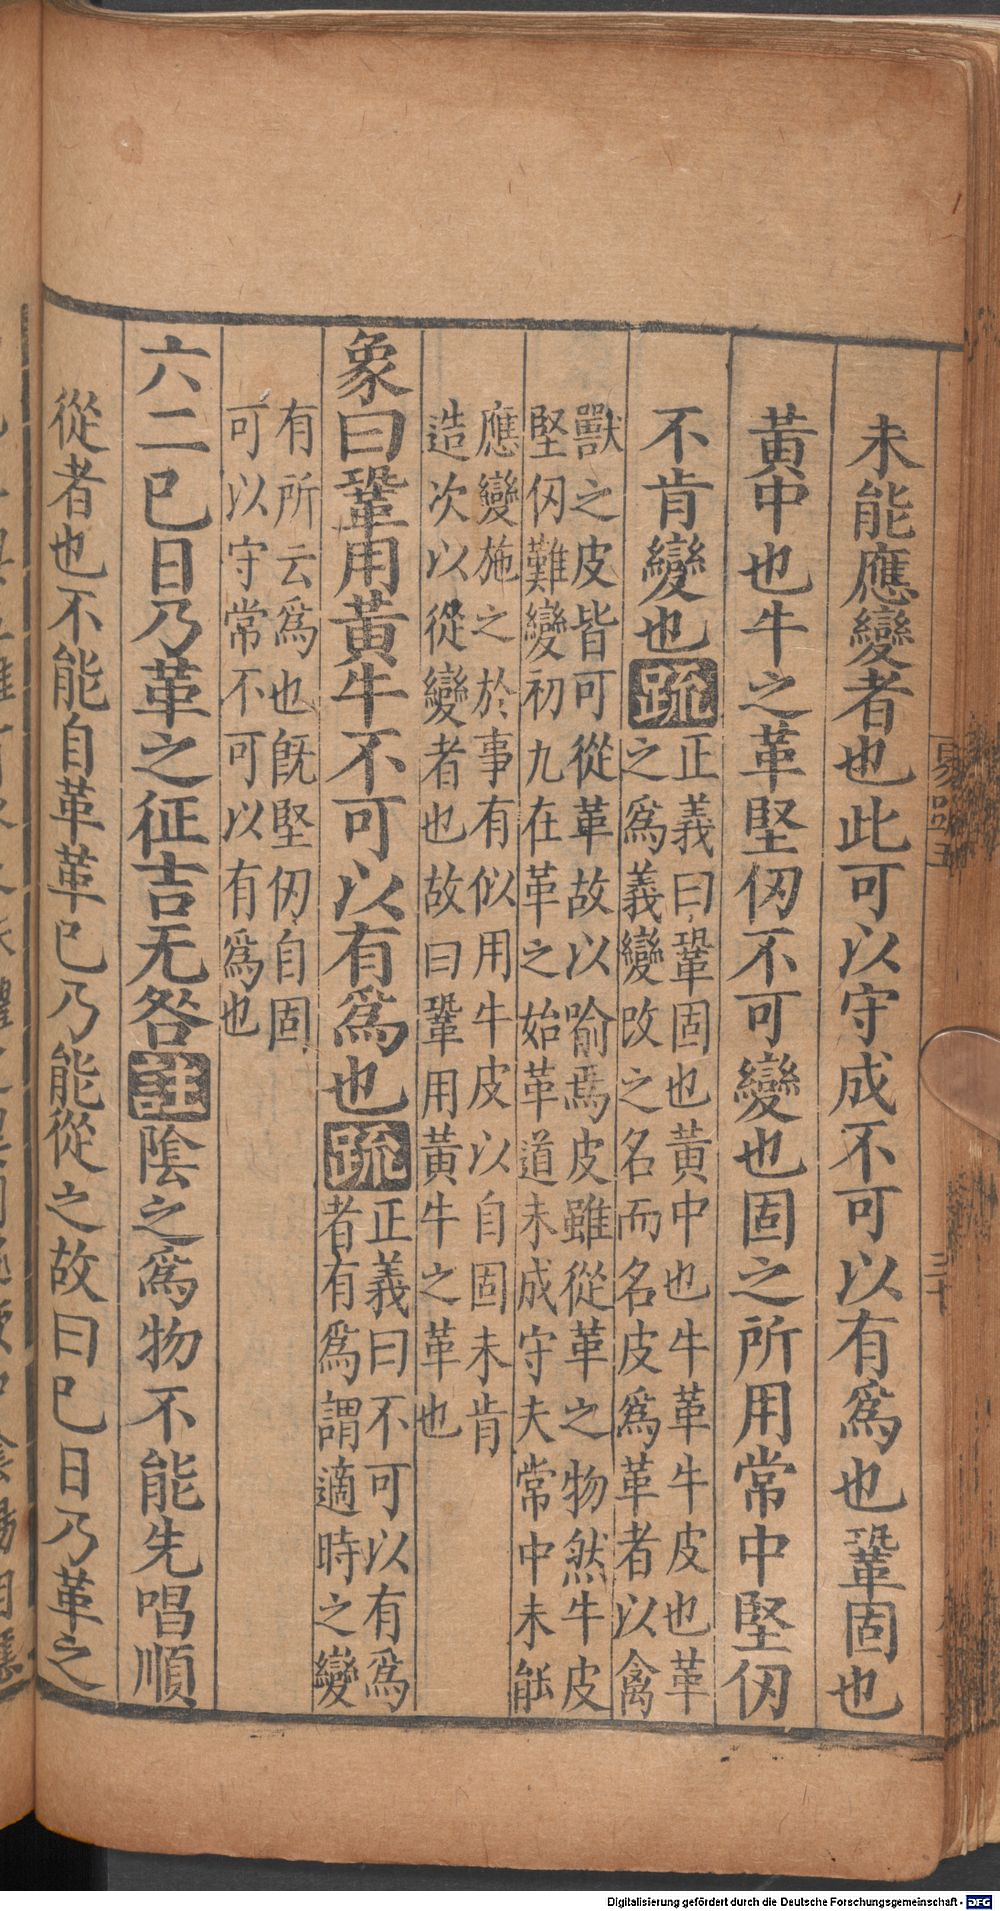 未能應變者也此可以守成不可以有爲也鞏固也
黃中也牛之革堅仞不可變也固之所用常中堅仞
不肯變也疏正義曰鞏固也黃中也牛革牛皮也革
之爲義變改之名而名皮爲革者以禽
獸之皮皆可從革故以喻焉皮雖從革之物然牛皮
堅仞難變初九在革之始革道未成守夫常中未能
應變施之於事有似用牛皮以自固未肯
造次以從變者也故曰鞏用黃牛之革也
象曰鞏用黃牛不可以有爲也疏正義曰不可以有爲
者有爲謂適時之變
有所云爲也旣堅仞自固
可以守常不可以有爲也
六二巳日乃革之征吉无咎註陰之爲物不能先唱順
從者也不能自革革巳乃能從之故曰巳日乃革之
易疏五
三十
Digitalisierung gefördert durch die Deutsche Forschungsgemeinschaft - DFG